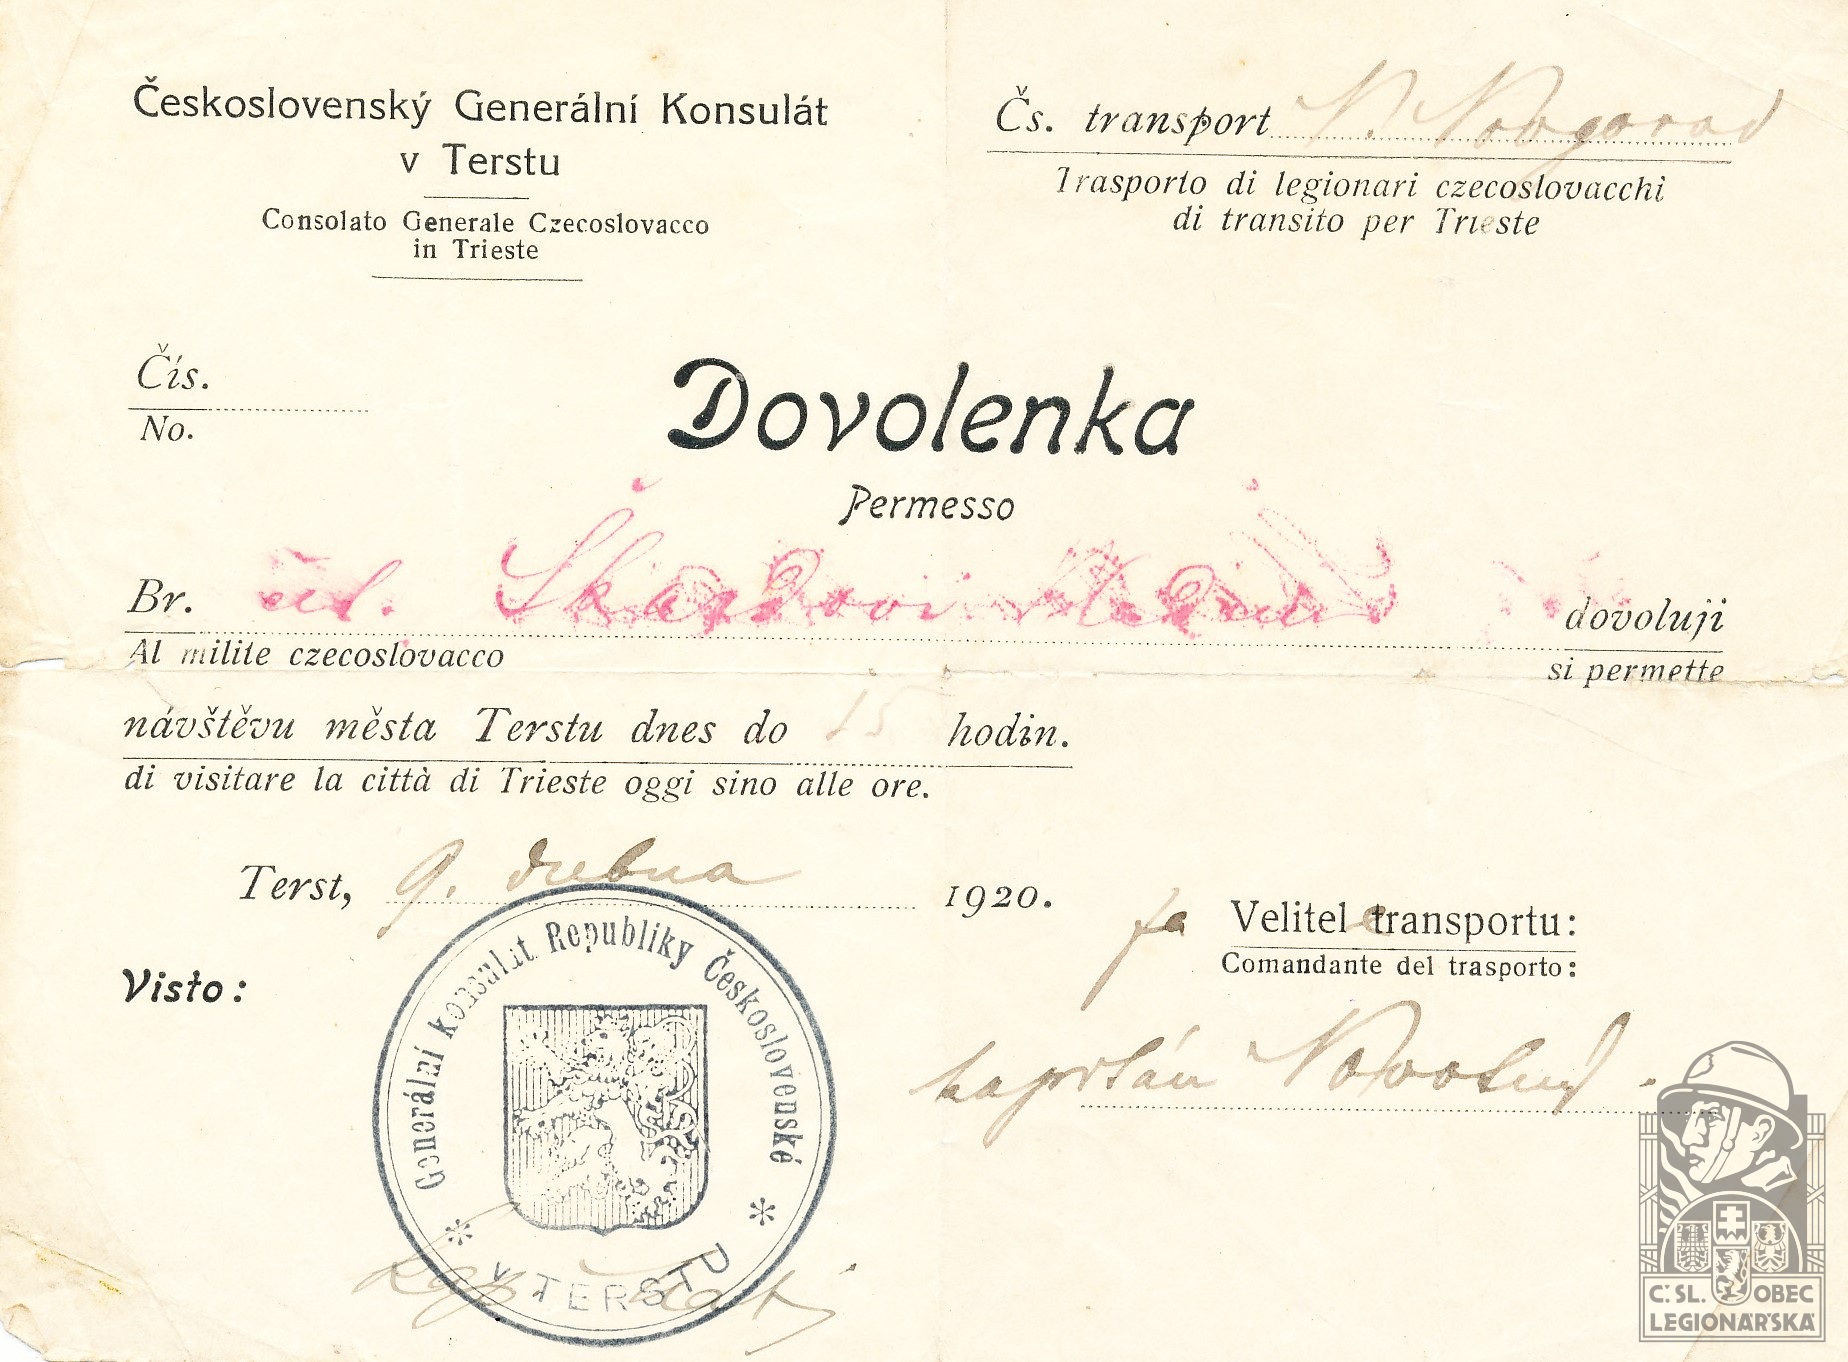 Československý Generální Konsulát
v Terstu
Consolato Generale Czecoslovacco
in Trieste
Čs. transport N. Novgorod
Trasporto di legionari czecoslovacchi
di transito per Trieste
Čís.
No.
Dovolenka
Permesso
Br. dovoluji
Al milite czecoslovacco si permette
návštěvu města Terstu dnes do 15 hodin.
di visitare la città di Trieste oggi sino alle ore.
Terst, 9. dubna 1920.
za Velitele transportu:
Comandante del trasporto:
kapitán Novotný.
Visto:
Generální konsulát Republiky Československé
* V TERSTU *
Č.SL. OBEC
LEGIONÁŘSKÁ